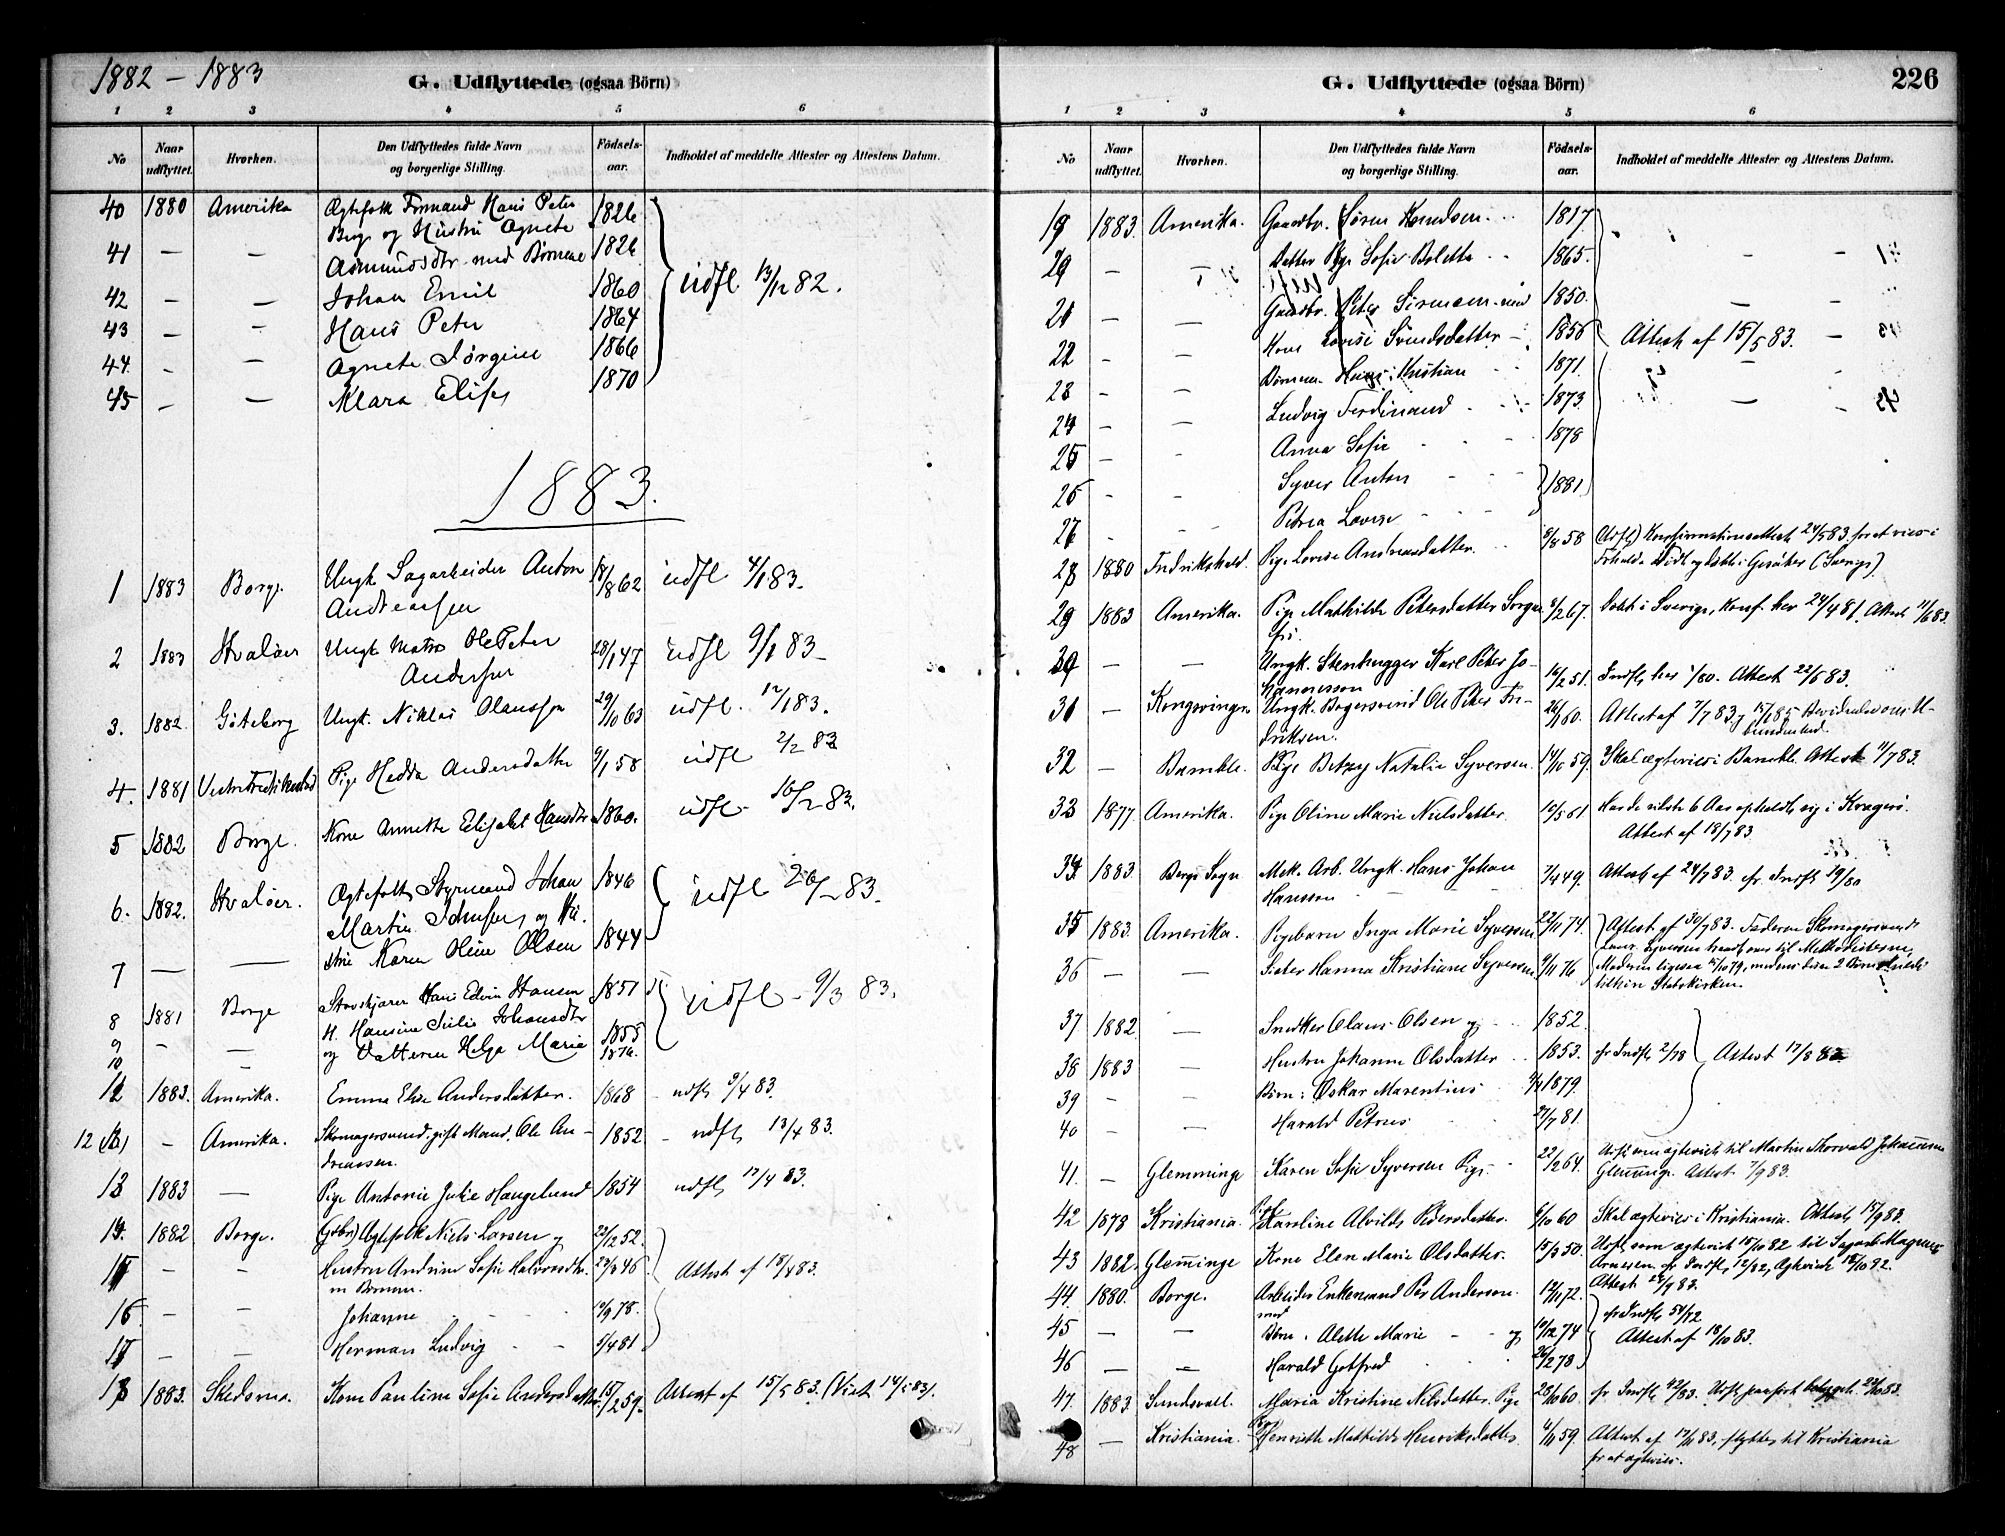 1882 – 1883
G. Udflyttede (ogsaa Börn)
1 2 3 4 5 6
No
Naar udflyttet.
Hvorhen.
Den Udflyttedes fulde Navn og borgerlige Stilling.
Födsels-aar.
Indholdet af meddelte Attester og Attestens Datum.
40 1880 Amerika Ægtefolk Formand Hans Peter 1826
Berg og Hustru Agnete
41 — — Asmundsdtr med Börnene 1826
42 — — Johan Emil 1860 udfl. 13/12 82.
43 — — Hans Peter 1864
44. — — Agnete Jörgine 1866
45 — — Klara Elise 1870
1883.
1 1883 Borge Ungk Sagarbeider Anton 18/8 62 udfl 4/1 83.
Andreassen
2 1883 Hvalöer Ungk Matros Ole Peter 28/1 47 udfl 9/1 83
Anderssen
3. 1882. Göteborg Ungk. Niklas Olaussen 29/10 63 udfl. 12/1 83.
4. 1881 Vestre Fredrikstad Pige Hedda Andersdatter 9/1 58 udfl 2/2 83
5 1882 Borge. Kone Annette Elisabet Hansdtr 1860. udfl. 16/2 83.
6. 1882. Hvalöer. Ægtefolk Styrmand Johan 1846
Martin Johnsen og Hu- udfl 20/2 83.
7 — — stru Karen Oline Olsen 1844
8 1881 Borge Stavskjærer Hans Edvin Hansen 1851 udfl – 9/3 83.
9 — — H. Hansine Julie Johansdtr 1853
10 — og Datteren Helga Marie 1876.
11 1883. Amerika. Emma Elise Andersdatter. 1868 udfl 9/4 83.
12 — Amerika. Skomagersvend, gift Mand, Ole An- 1852. udfl, 13/4 83.
dreassen.
13 1883 — Pige Antonie Julie Haugelund 1854 udfl, 17/4 83.
14. 1882 Borge. (Gbr) Ægtefolk Niels Larsen og 22/12 52.
15 — — Hustru Andrine Sofie Halvorsdtr. 29/3 46 Attest af 18/4 83.
m Börnene.
16. — — Johanne 12/9 78.
17 — — Herman Ludvig 5/4 81
18 1883. Skedsmo. Kone Pauline Sofie Andersdatter. 15/2 59. Attest af 15/5 83. (Viet 14/5 83).
G. Udflyttede (ogsaa Börn) 226
1 2 3 4 5 6
No
Naar udflyttet.
Hvorhen.
Den Udflyttedes fulde Navn og borgerlige Stilling.
Födsels-aar.
Indholdet af meddelte Attester og Attestens Datum.
19 1883. Amerika. Gaardbr. Sören Knudsen 1817
20 — — Datter Pige Sofie Bolette 1865.
21 — — Gaardbr. Peter Sörensen med 1850.
22 — — Kone Lovise Svendsdatter 1856 Attest af 15/5 83.
23 — — Börnene Hans Kristian 1871.
24 — — Ludvig Ferdinand 1873
25 — Anna Sofie 1878
26 — — Syver Anton 1881
27 — — Petrea Lovise
28 1880 Fredrikshald. Pige Lovise Andreasdatter. 8/8 58 Udfl) Konfirmationsattest 24/5 83 for at vies i
29 1883 Amerika. Pige Mathilde Petersdatter 8/2 67. Döbt i Sverige, Konf. her 24/4 81. Attest 11/6 83.
30 — — Ungk. Stenhugger Karl Peter Jo- 16/2 51. Indfl, her 1/80. Attest 22/6 83.
hannesson
31 — Kongsvinger Ungk. Bagersvend Ole Peter Fre- 26/1 60. Attest af 7/7 83 og
driksen.
32 — Bamble. Pige Betzy Natalie Syversen. 14/10 59. Skal ægtevies i Bamble. Attest 11/7 83.
33 1877 Amerika. Pige Oline Marie Nielsdatter. 10/5 61 Har de sidste 6 Aar opholdt sig i Kragerö.
Attest af 18/7 83
34 1883 Borge Sogn Mek. Arb. Ungk. Hans Johan 7/4 49. Attest af 24/7 83. cfr Indfl 19/80
Hansson
35 1883. Amerika. Pigebarn Inga Marie Syversen 22/11 74. Attest af 30/7 83. Faderen Skomagersvend
36 — — Söster Hanna Kristiane Syversen 9/11 76 Moderen ligesaa 12/10 79, medens disse 2 Börn
til hin Statskirken.
37 1882 — Snedker Olaus Olsen og 1852.
38 1883 — Hustru Johanne Olsdatter 1853. cfr Indfl 2/78 Attest 17/8 83.
39 — — Börn: Oskar Marentius 1879.
40 — — Harald Petrus 21/7 81.
41. — Glemminge Karen Sofie Syversen Pige 22/2 64. Udfl, som ægteviet til Martin Thorvald Johannesen
Glemminge. Attest 7/9 83.
42 1878 Kristiania. Pige Karoline Alvilde Pedersdatter. 6/10 60 Skal ægtevies i Kristiania. Attest, 15/9 83.
43 1882. Glemminge Kone Elen Marie Olsdatter. 15/3 50. Udfl, som ægteviet 15/10 82 til Sagarb Magnus
Arnesen cfr Indfl, 12/82, Ægteviet 15/10 82.
44. 1880. Borge. Arbeider Enkemand Per Anderson. 12/11 72. Attest 22/9 83.
med cfr Indfl, 54/72
45 — — Börn: Alette Marie og 10/12 74 Attest af 18/10 83.
46 — — Harald Gotfred 26/2 78
47. 1883. Sundsvall. Maria Kristine Nilsdatter. Pige 28/10 60. cfr Indfl, 42/83.
48 — Kristiania. Pige Henriette Mathilde Henriksdatter. 6/11 59. Attest af 17/11 83, flyttes til Kristiania
for at ægtevies.